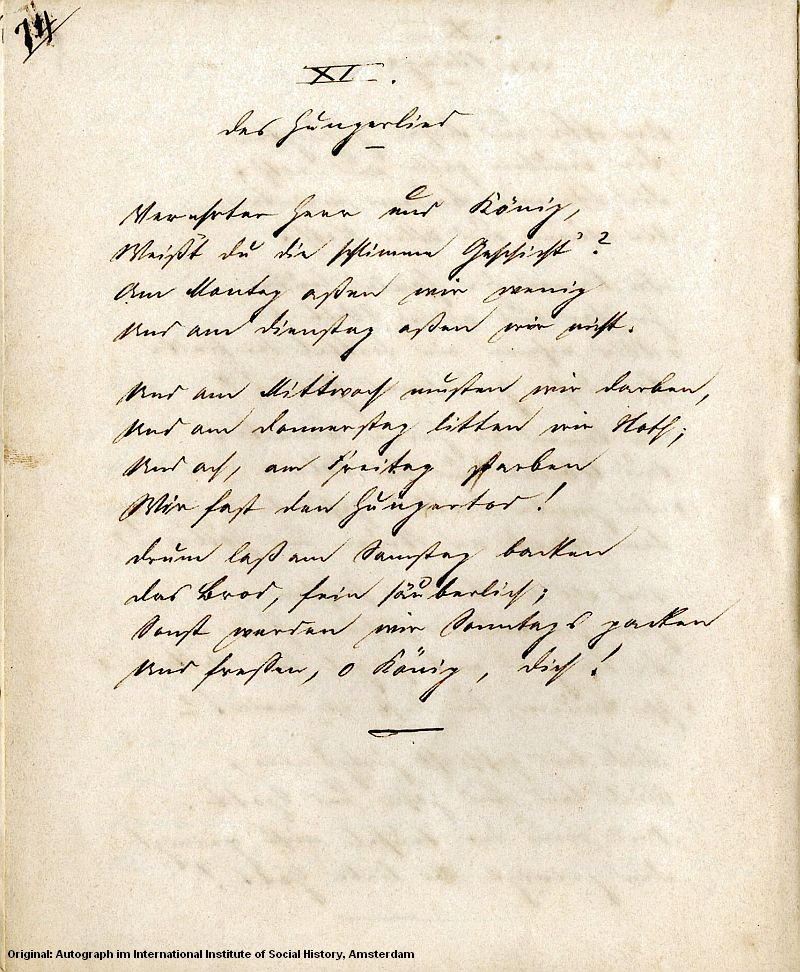 74
XI.
Das Hungerlied
Verehrter Herr und König,
Weißt du die schlimme Geschicht'?
Am Montag aßen wir wenig
Und am Dienstag aßen wir nicht.
Und am Mittwoch mußten wir darben,
Und am Donnerstag litten wir Noth;
Und ach, am Freitag starben
Wir fast den Hungertod!
Drum laß am Samstag backen
Das Brod, fein säuberlich;
Sonst werden wir Sonntags packen
Und fressen, o König, dich!
Original: Autograph im International Institute of Social History, Amsterdam